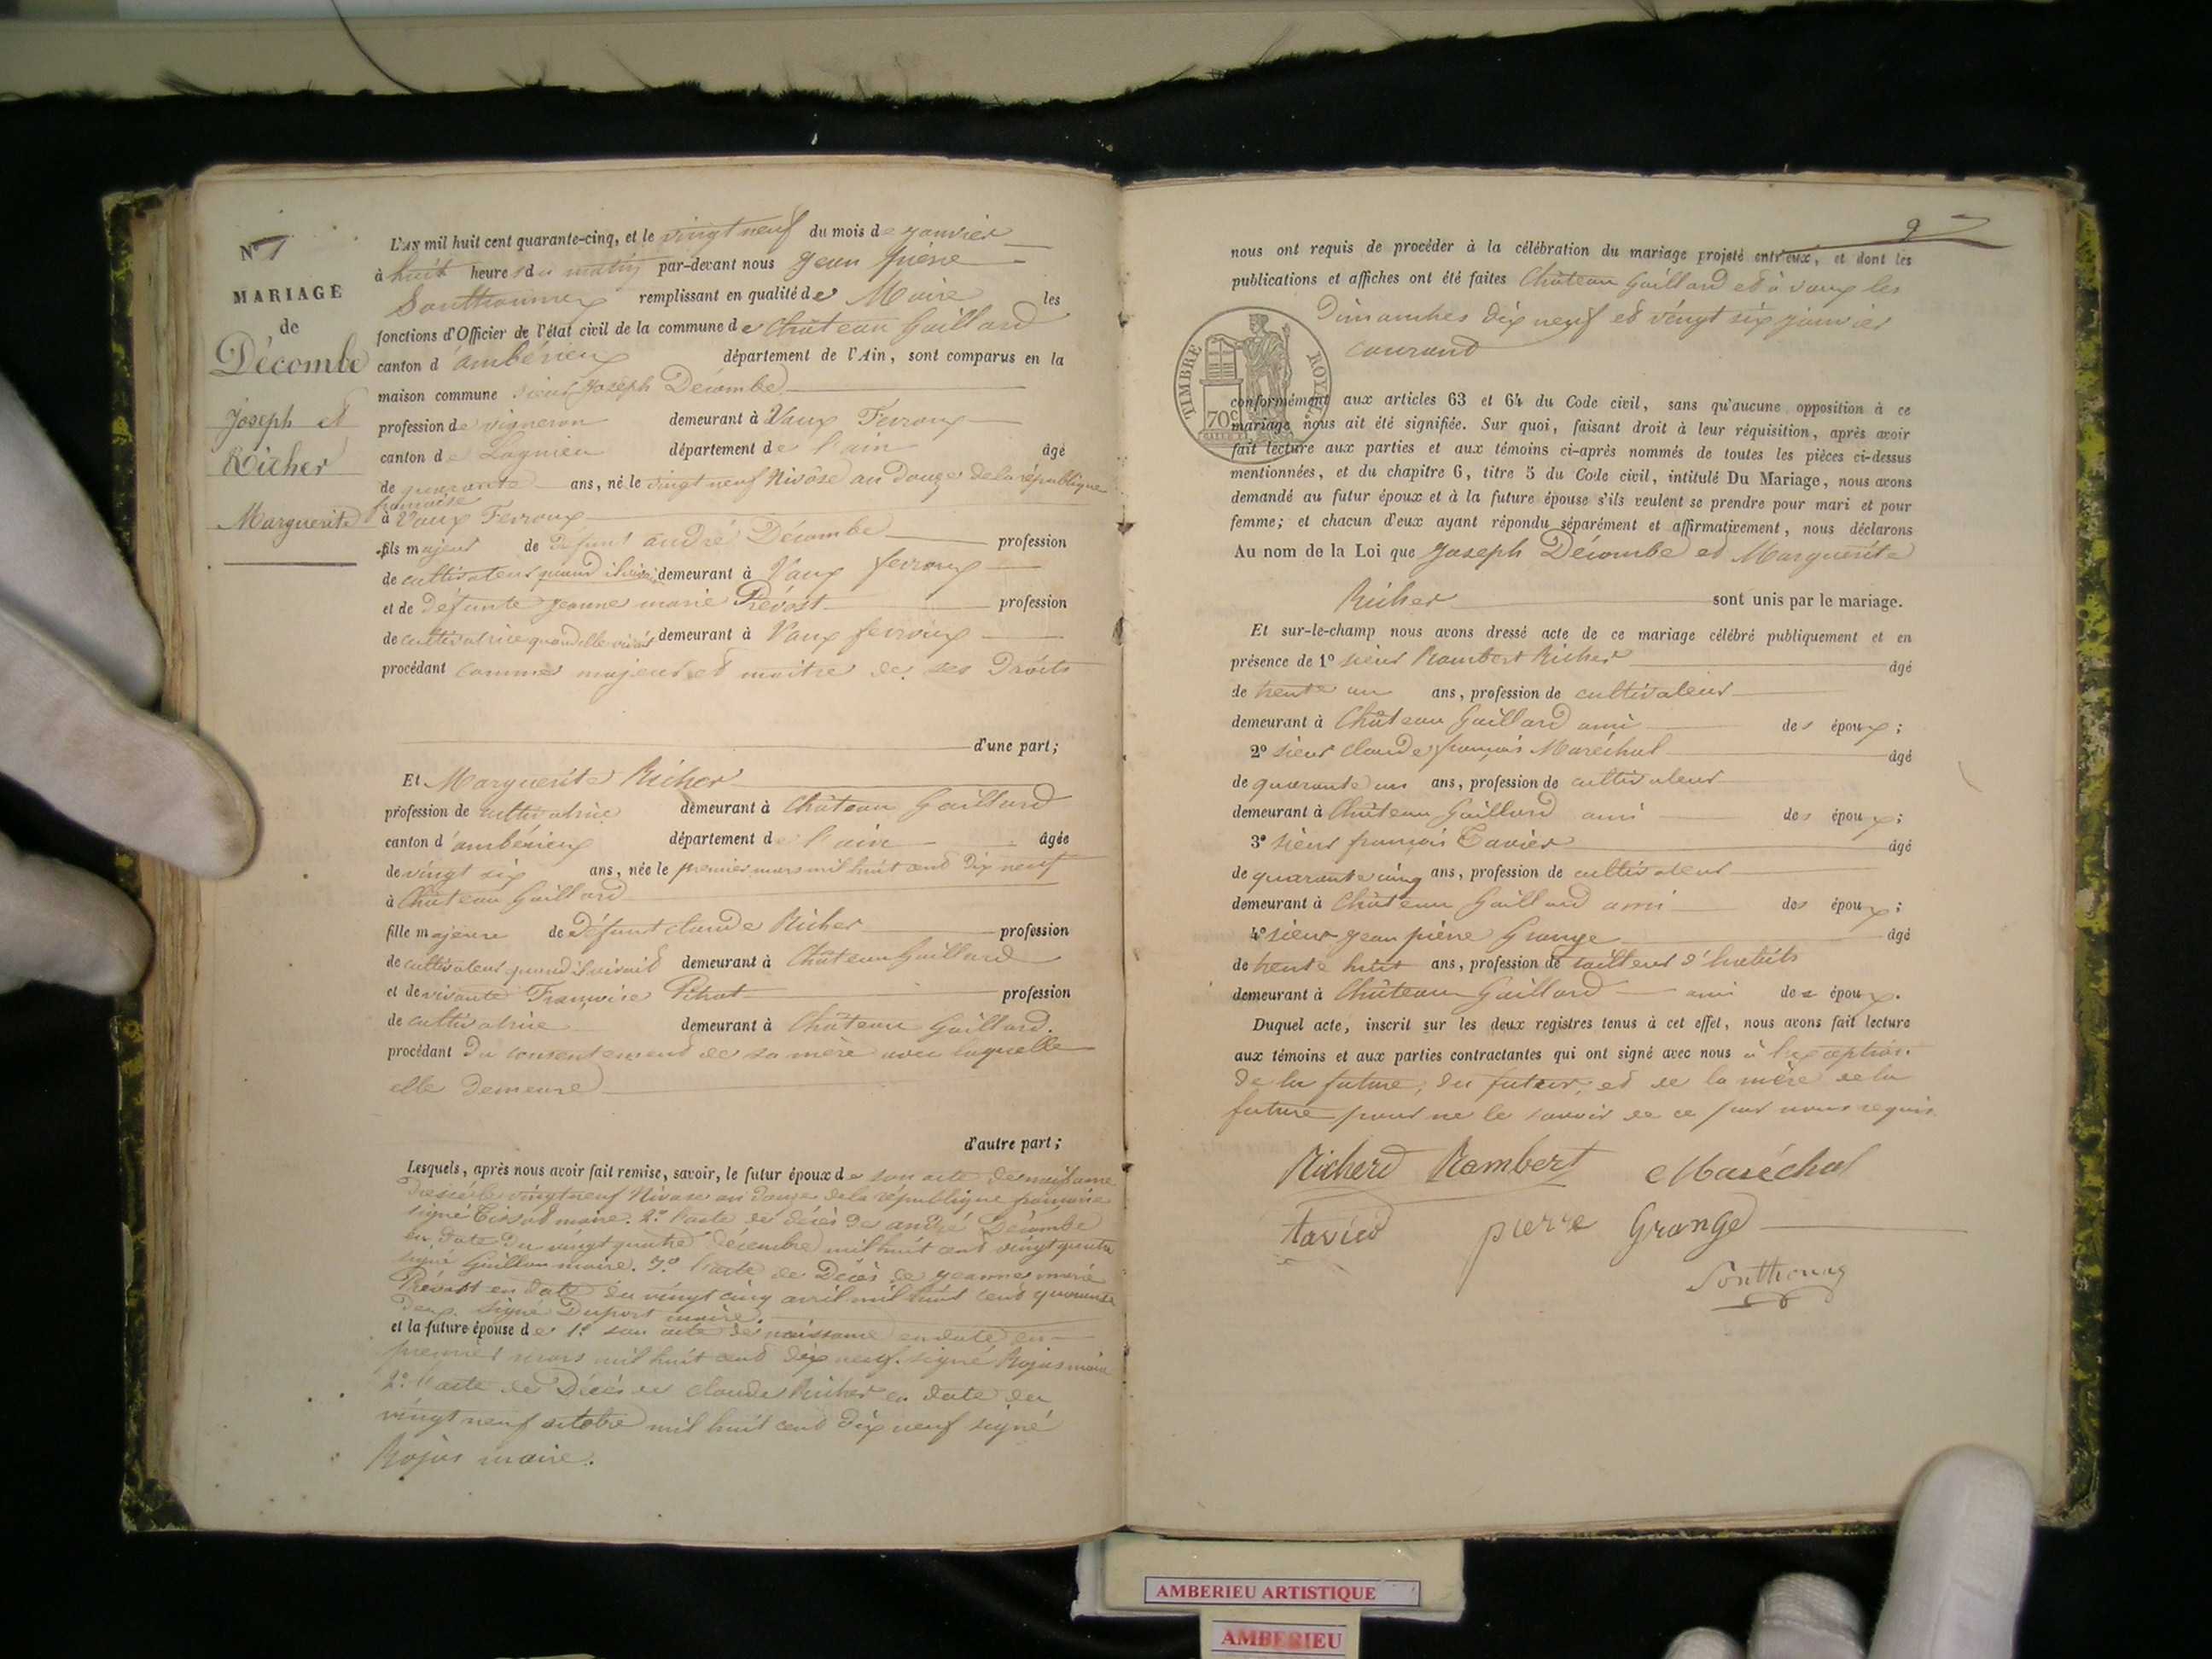 N° 7
MARIAGE
de
Décombe
Joseph et
Richer
Marguerite
L'AN mil huit cent quarante-cinq, et le vingt neuf du mois de janvier
à huit heures du matin par-devant nous jean pierre
Sonthounax remplissant en qualité de Maire les
fonctions d'Officier de l'état civil de la commune de Château Gaillard
canton d'ambérieux département de l'Ain, sont comparus en la
maison commune sieur Joseph Décombe
profession de vigneron demeurant à Vaux Fevroux
canton de Lagnieu département de l'ain âgé
de quarante ans, né le vingt neuf Nivôse an douze de la république
française
à Vaux Fevroux
fils majeur de défunt andré Décombe profession
de cultivateur quand il vivait demeurant à Vaux fevroux
et de Défunte jeanne marie Prévost profession
de cultivatrice quand elle vivait demeurant à Vaux fevroux
procédant comme majeur et maitre de ses Droits
d'une part;
Et Marguerite Richer
profession de cultivatrice demeurant à Château Gaillard
canton d'ambérieux département de l'ain âgée
de vingt six ans, née le premier mars mil huit cent dix neuf
à Château Gaillard
fille majeure de Défunt claude Richer profession
de cultivateur quand il vivait demeurant à Château Gaillard
et de vivante Françoise Pitrat profession
de cultivatrice demeurant à Château Gaillard.
procédant du consentement de sa mère avec laquelle
elle demeure
d'autre part;
Lesquels, après nous avoir fait remise, savoir, le futur époux de son acte de naissance
Dressé le vingt neuf Nivose an douze de la république française
signé Tissot maire. 2° l'acte de décès de andré Décombe
en date du vingt quatre décembre mil huit cent vingt quatre
signé Guillon maire. 3° l'acte de Décès de jeanne marie
Prévost en date du vingt cinq avril mil huit cent quarante
deux. signé Duport maire.
et la future épouse de 1° son acte de naissance en date du
premier mars mil huit cent dix neuf. signé Rojas maire
2° l'acte de Décès de claude Richer en date du
vingt neuf octobre mil huit cent dix neuf signé
Rojas maire.
9
nous ont requis de procéder à la célébration du mariage projeté entr'eux, et dont les
publications et affiches ont été faites Château Gaillard et à vaux les
Dimanches dix neuf et vingt six janvier
courant
TIMBRE ROYAL
70c
conformément aux articles 63 et 64 du Code civil, sans qu'aucune opposition à ce
mariage nous ait été signifiée. Sur quoi, faisant droit à leur réquisition, après avoir
fait lecture aux parties et aux témoins ci-après nommés de toutes les pièces ci-dessus
mentionnées, et du chapitre 6, titre 5 du Code civil, intitulé Du Mariage, nous avons
demandé au futur époux et à la future épouse s'ils veulent se prendre pour mari et pour
femme; et chacun d'eux ayant répondu séparément et affirmativement, nous déclarons
Au nom de la Loi que Joseph Décombe et Marguerite
Richer sont unis par le mariage.
Et sur-le-champ nous avons dressé acte de ce mariage célébré publiquement et en
présence de 1° sieur Rambert Richer âgé
de trente un ans, profession de cultivateur
demeurant à Château Gaillard ami des époux;
2° sieur claude françois Maréchal âgé
de quarante un ans, profession de cultivateur
demeurant à Château Gaillard ami des époux;
3° sieur françois Tavier âgé
de quarante cinq ans, profession de cultivateur
demeurant à Château Gaillard ami des époux;
4° sieur jean pierre Grange âgé
de trente huit ans, profession de tailleur d'habits
demeurant à Château Gaillard ami des époux.
Duquel acte, inscrit sur les deux registres tenus à cet effet, nous avons fait lecture
aux témoins et aux parties contractantes qui ont signé avec nous à l'exception
de la future, du futur, et de la mère de la
future pour ne le savoir de ce par nous requis
Richerd Rambert Maréchal
Tavier pierre Grange
Sonthonax
AMBERIEU ARTISTIQUE
AMBERIEU